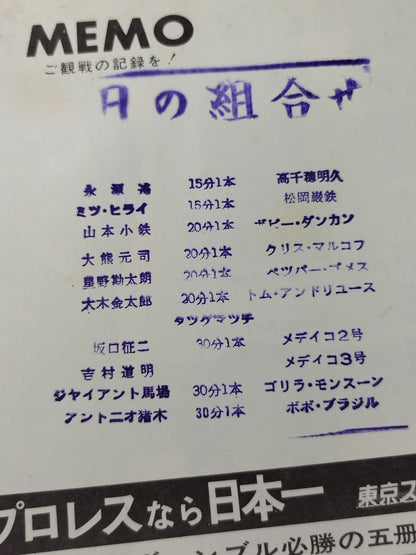 MEMO
ご観戦の記録を!
日の組合せ
永源遙 15分1本 高千穂明久
ミツ・ヒライ 15分1本 松岡巌鉄
山本小鉄 20分1本 ザビー・ダンカン
大熊元司 20分1本 クリス・マルコフ
星野勘太郎 20分1本 ペッパー・ゴメス
大木金太郎 20分1本 トム・アンドリュース
タッグマッチ
坂口征二 30分1本 メデイコ2号
吉村道明 メデイコ3号
ジャイアント馬場 30分1本 ゴリラ・モンスーン
アントニオ猪木 30分1本 ボボ・ブラジル
プロレスなら日本一 東京ス
ンブル必勝の五冊